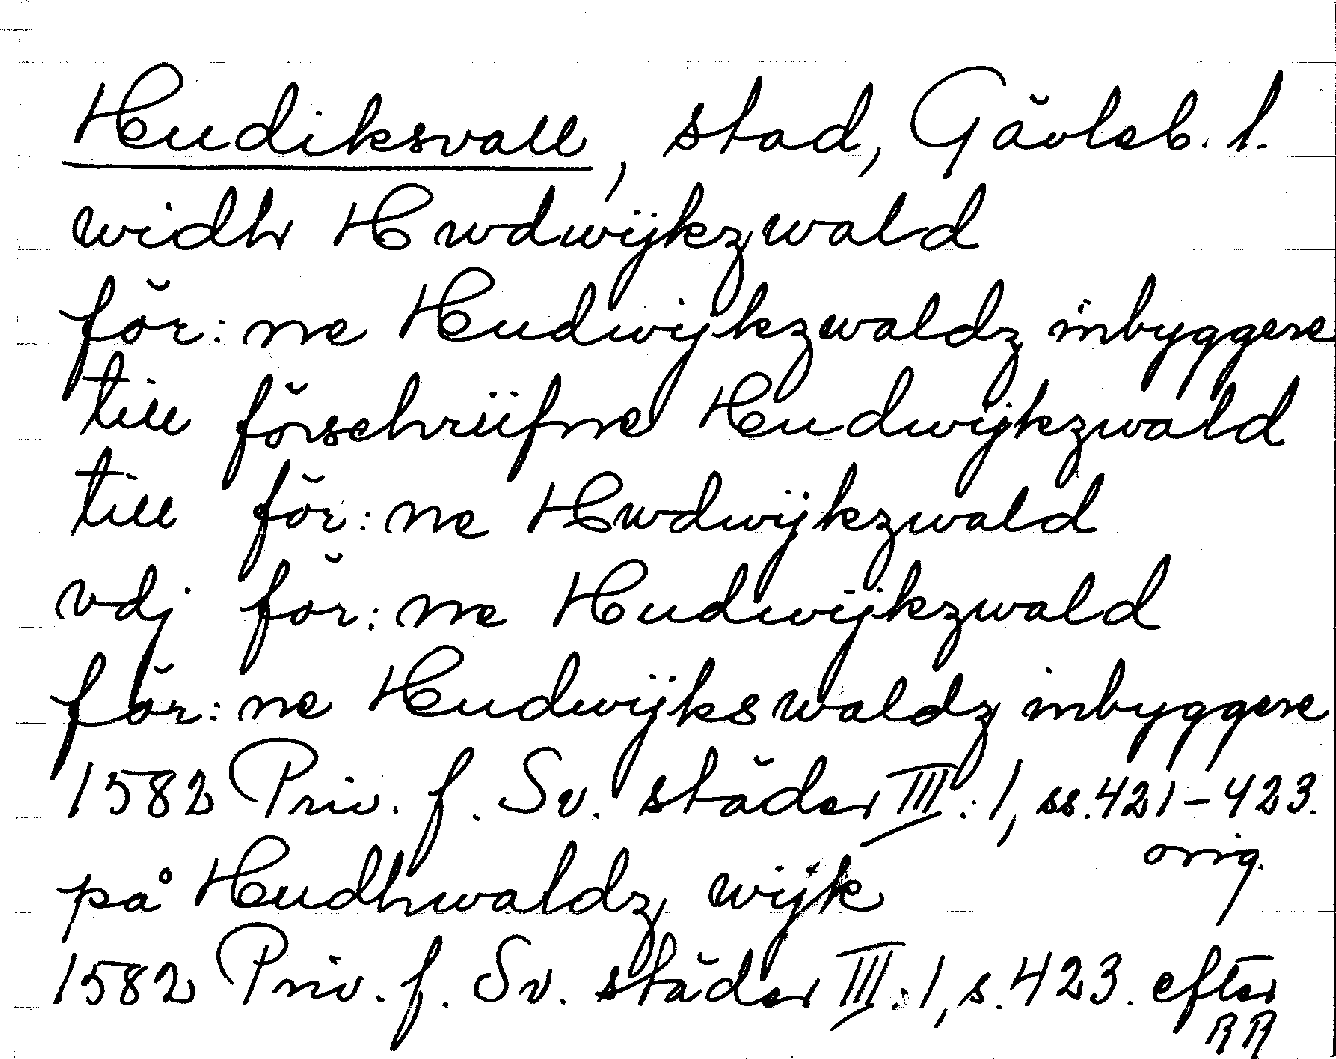 Hudiksvall, stad, Gävleb. l.
widh Hwdwijkzwald
för:ne Hudwijkzwaldz inbyggere
till förschriifne Hudwijkzwald
till för:ne Hwdwijkzwald
vdj för:ne Hudwijkzwald
för:ne Hudwijkswaldz inbyggere
1582 Priv. f. Sv. städer III:1, ss. 421–423.
orig.
på Hudhwaldz wijk
1582 Priv. f. Sv. städer III:1, s. 423. efter
RR